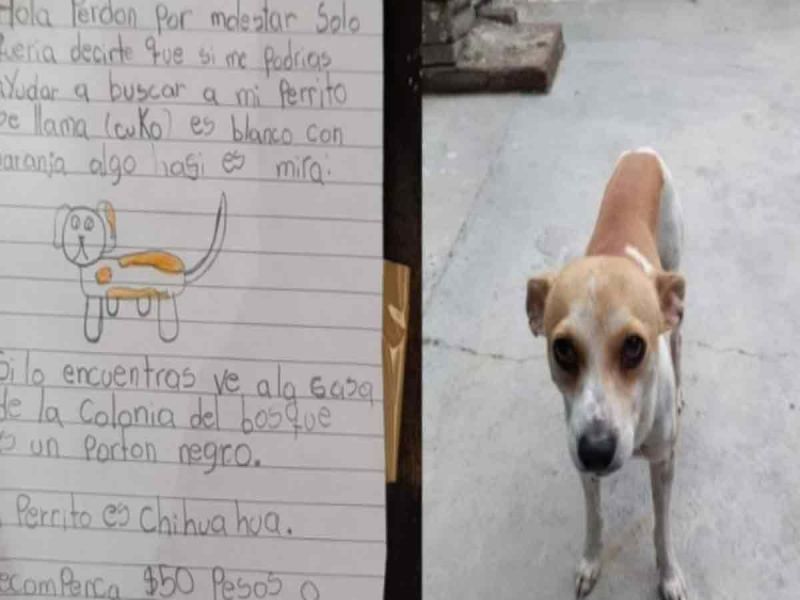 Hola Perdon Por molestar Solo
queria decirte que si me Podrias
ayudar a buscar a mi Perrito
se llama (cuko) es blanco con
naranja algo hasi es mira:
Si lo encuentras ve ala casa
de la Colonia del bosque
es un Porton negro.
Perrito es Chihuahua.
recomPerca $50 Pesos o